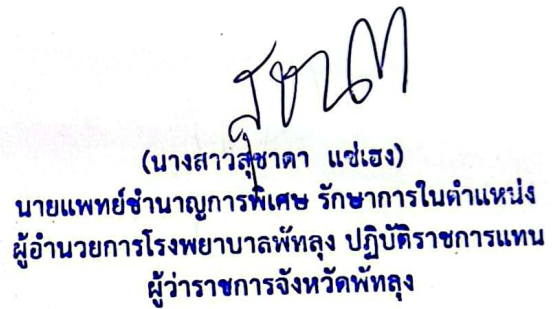 (นางสาวสุชาดา แซ่เฮง)
นายแพทย์ชำนาญการพิเศษ รักษาการในตำแหน่ง
ผู้อำนวยการโรงพยาบาลพัทลุง ปฏิบัติราชการแทน
ผู้ว่าราชการจังหวัดพัทลุง